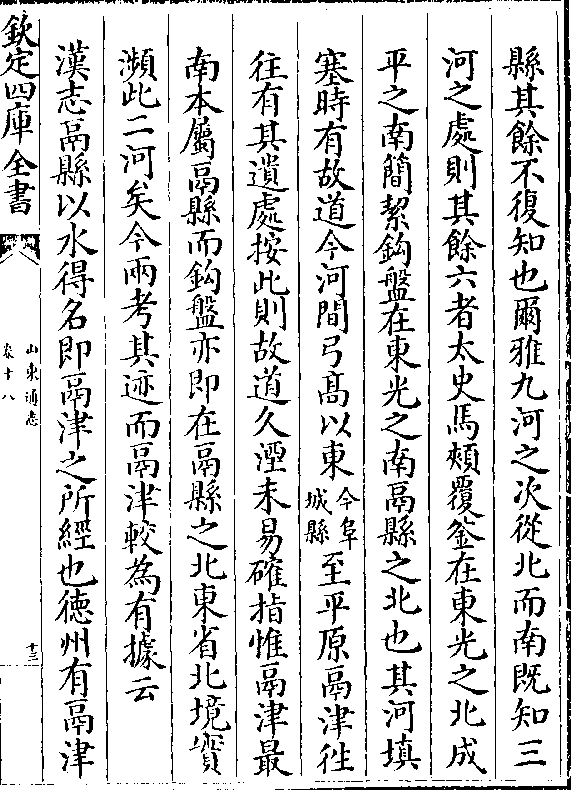 縣其餘不復知也爾雅九河之次從北而南既知三
河之處則其餘六者太史馬頰覆釜在東光之北成
平之南簡絜鈎盤在東光之南鬲縣之北也其河填
塞時有故道今河間弓髙以東今阜城縣至平原鬲津徃
往有其遺處按此則故道久湮未易確指惟鬲津最
南本屬鬲縣而鈎盤亦即在鬲縣之北東省北境實
瀕此二河矣今兩考其迹而鬲津較為有據云
漢志鬲縣以水得名即鬲津之所經也徳州有鬲津
欽定四庫全書
山東通志
卷十八
十三